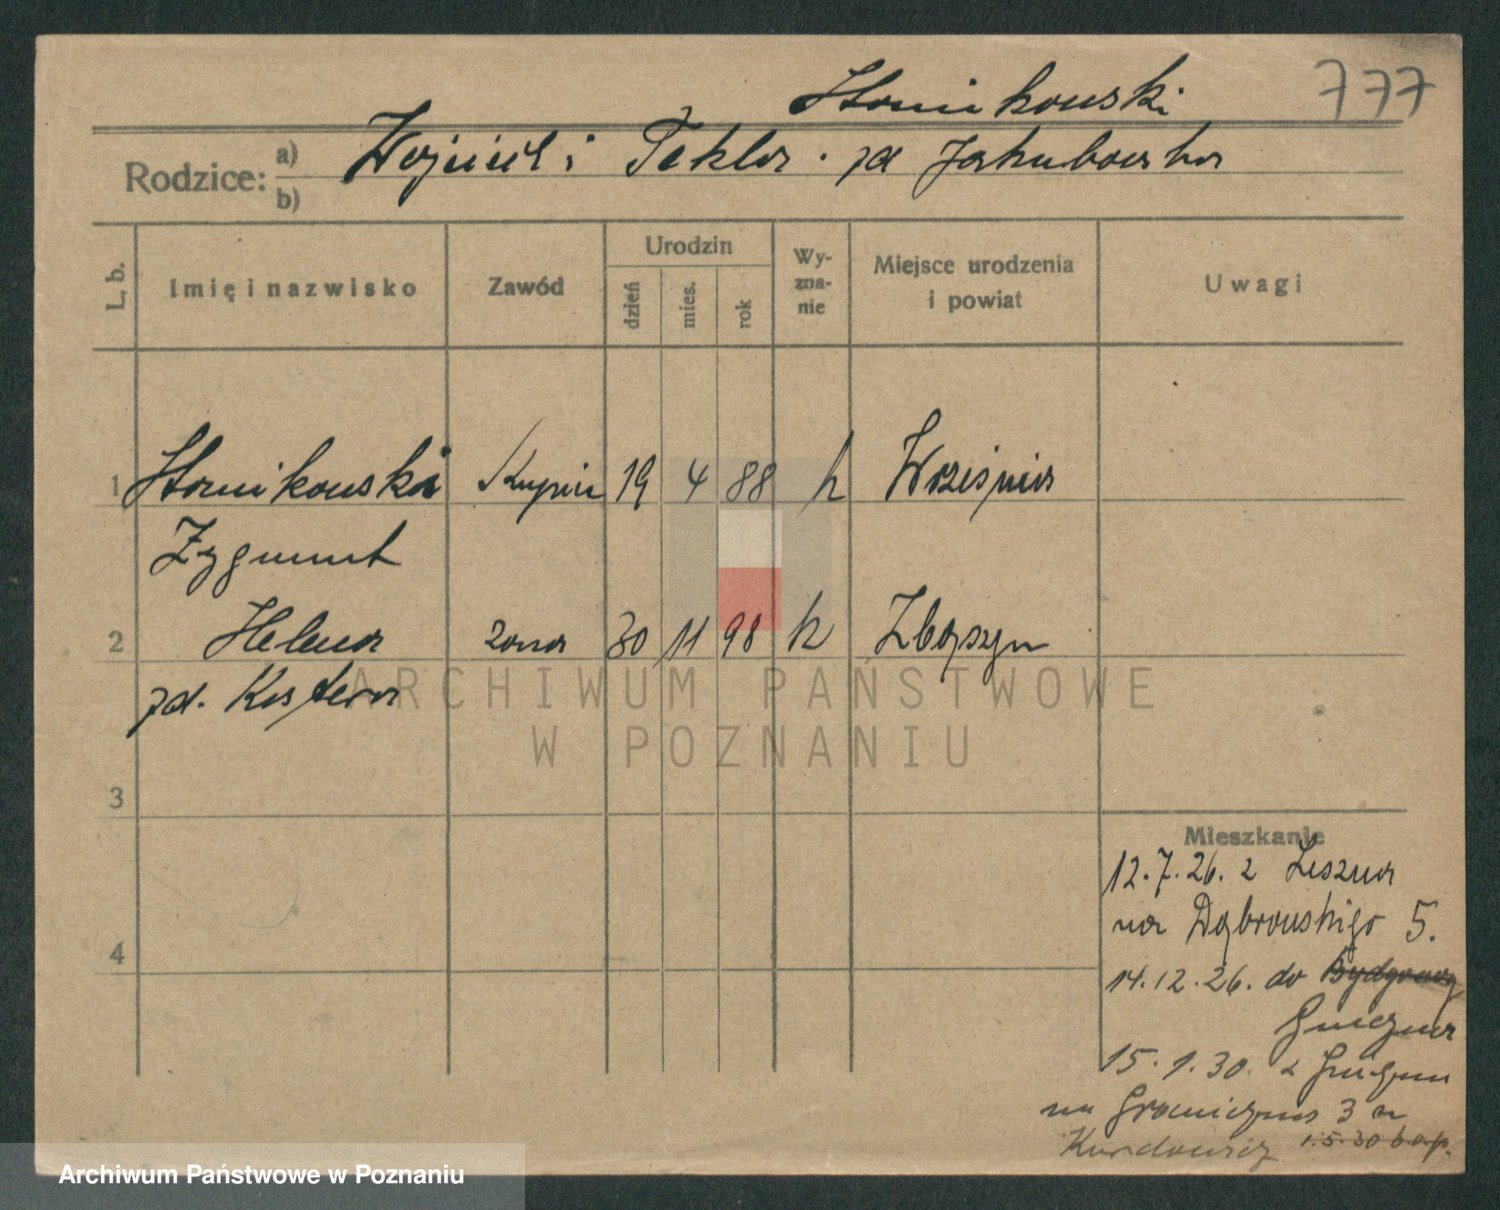 777
Słomikowski
Rodzice: a) b)
Wojciech i Tekla. zd Jakubowska
L. b.
Imię i nazwisko
Zawód
Urodzin
dzień
mies.
rok
Wy-
zna-
nie
Miejsce urodzenia
i powiat
Uwagi
1 Słomikowski Kupiec 19 4 88 k Września
Zygmunt
2 Helena żona 30 11 98 k Zbąszyn
zd. Kostera
3
4
Mieszkanie
12.7.26. z Leszna
na Dąbrowskiego 5.
14.12.26. do Bydgoszcz
Gniezna
15.1.30. z Gniezna
na Graniczna 3 u
1.5.30
ARCHIWUM PAŃSTWOWE
W POZNANIU
Archiwum Państwowe w Poznaniu